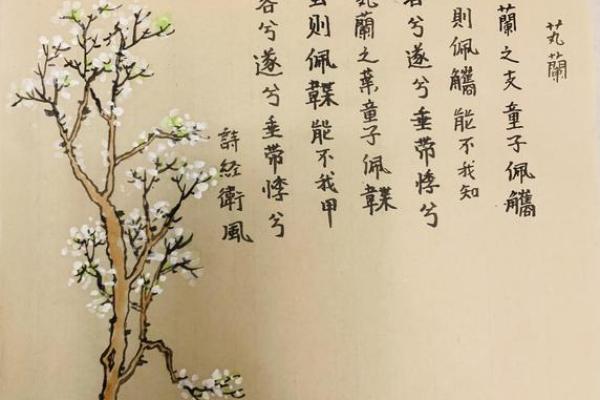 芄蘭
蘭之支童子佩觿
則佩觿能不我知
容兮遂兮垂帶悸兮
芄蘭之葉童子佩韘
則佩韘能不我甲
容兮遂兮垂帶悸兮
詩経衛風